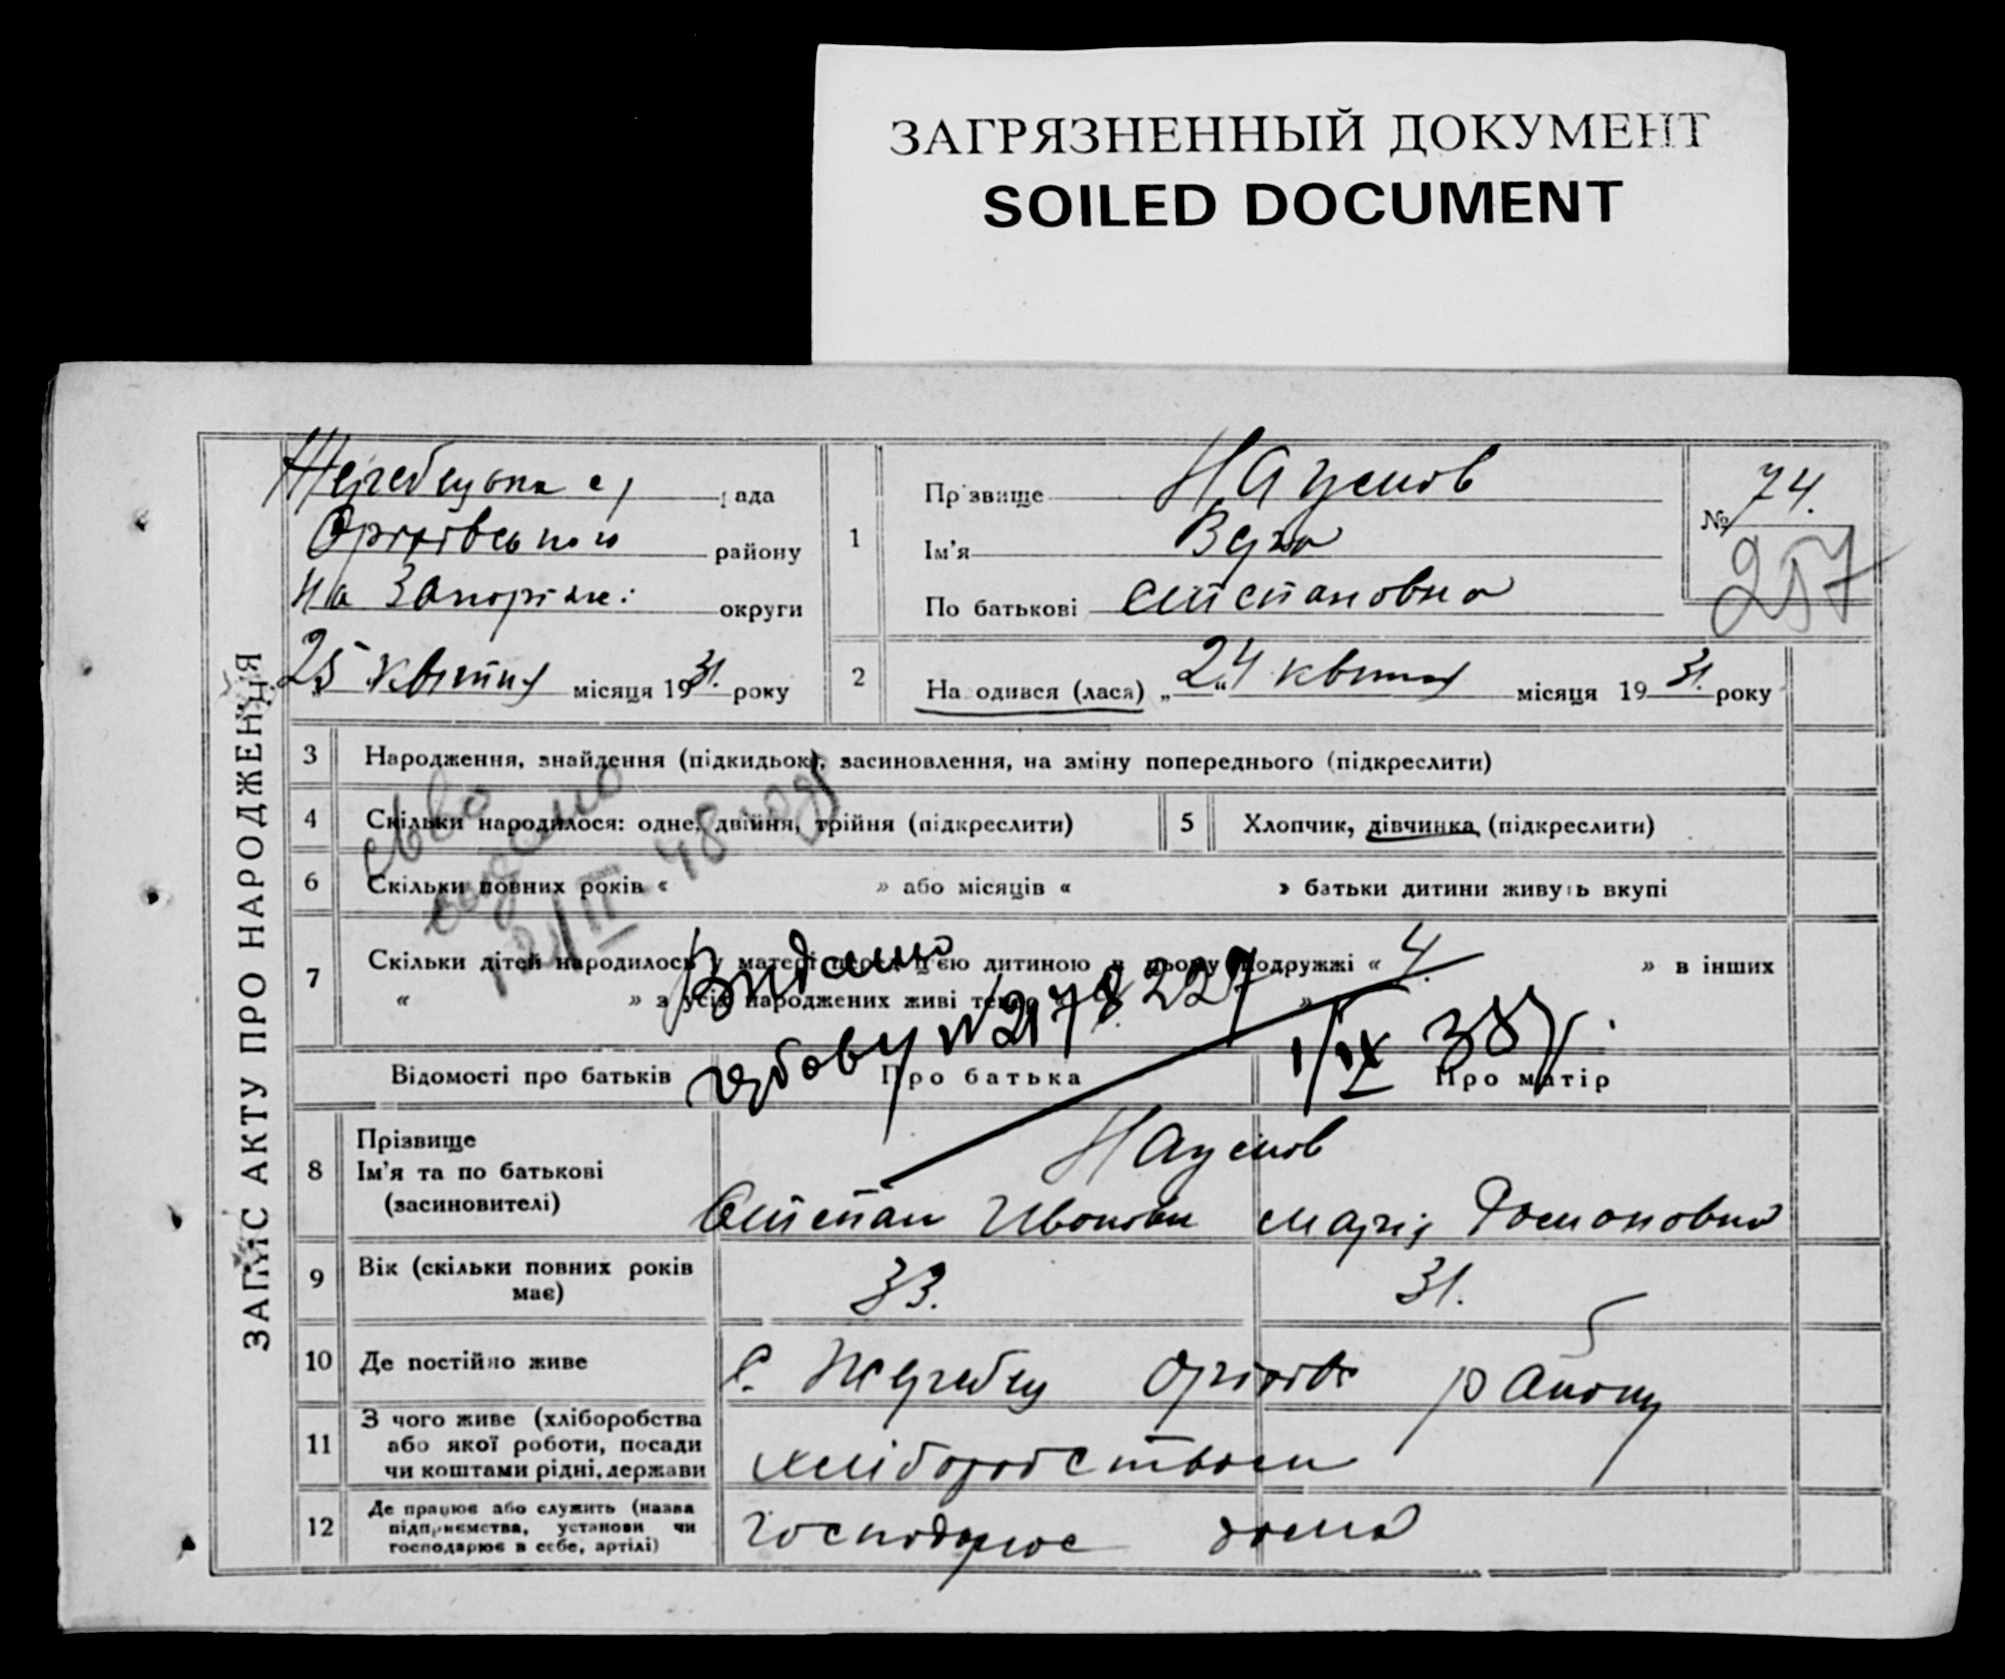 ЗАГРЯЗНЕННЫЙ ДОКУМЕНТ
SOILED DOCUMENT
ЗАПИС АКТУ ПРО НАРОДЖЕННЯ
Жеребецька с/рада
Оріхівського району
на Запоріжі округи
25 квітня місяця 1931. року
1
Прізвище Наумов
Ім'я Вера
По батькові Степановна
№ 74.
257
2
Народився (лася) „24“ квітня місяця 1931. року
3 Народження, знайдення (підкидьок), засиновлення, на зміну попереднього (підкреслити)
4 Скільки народилося: одне, двійня, трійня (підкреслити)
5 Хлопчик, дівчинка (підкреслити)
6 Скільки повних років « » або місяців « » батьки дитини живуть вкупі
7 Скільки дітей народилось у матері перед цією дитиною в цьому подружжі « 4. » в інших
« » з усіх народжених живі тепер « »
Видано
№ 2178227
1/IX 38 р.
Відомості про батьків Про батька Про матір
8 Прізвище
Ім'я та по батькові
(засиновителі)
Наумов
Степан Иванович Марія Романовна
9 Вік (скільки повних років має) 33. 31.
10 Де постійно живе с. Жеребец Оріхів району
11 З чого живе (хліборобства
або якої роботи, посади
чи коштами рідні, держави
хліборобством
12 Де працює або служить (назва
підприємства, установи чи
господарює в себе, артілі)
господарює дома